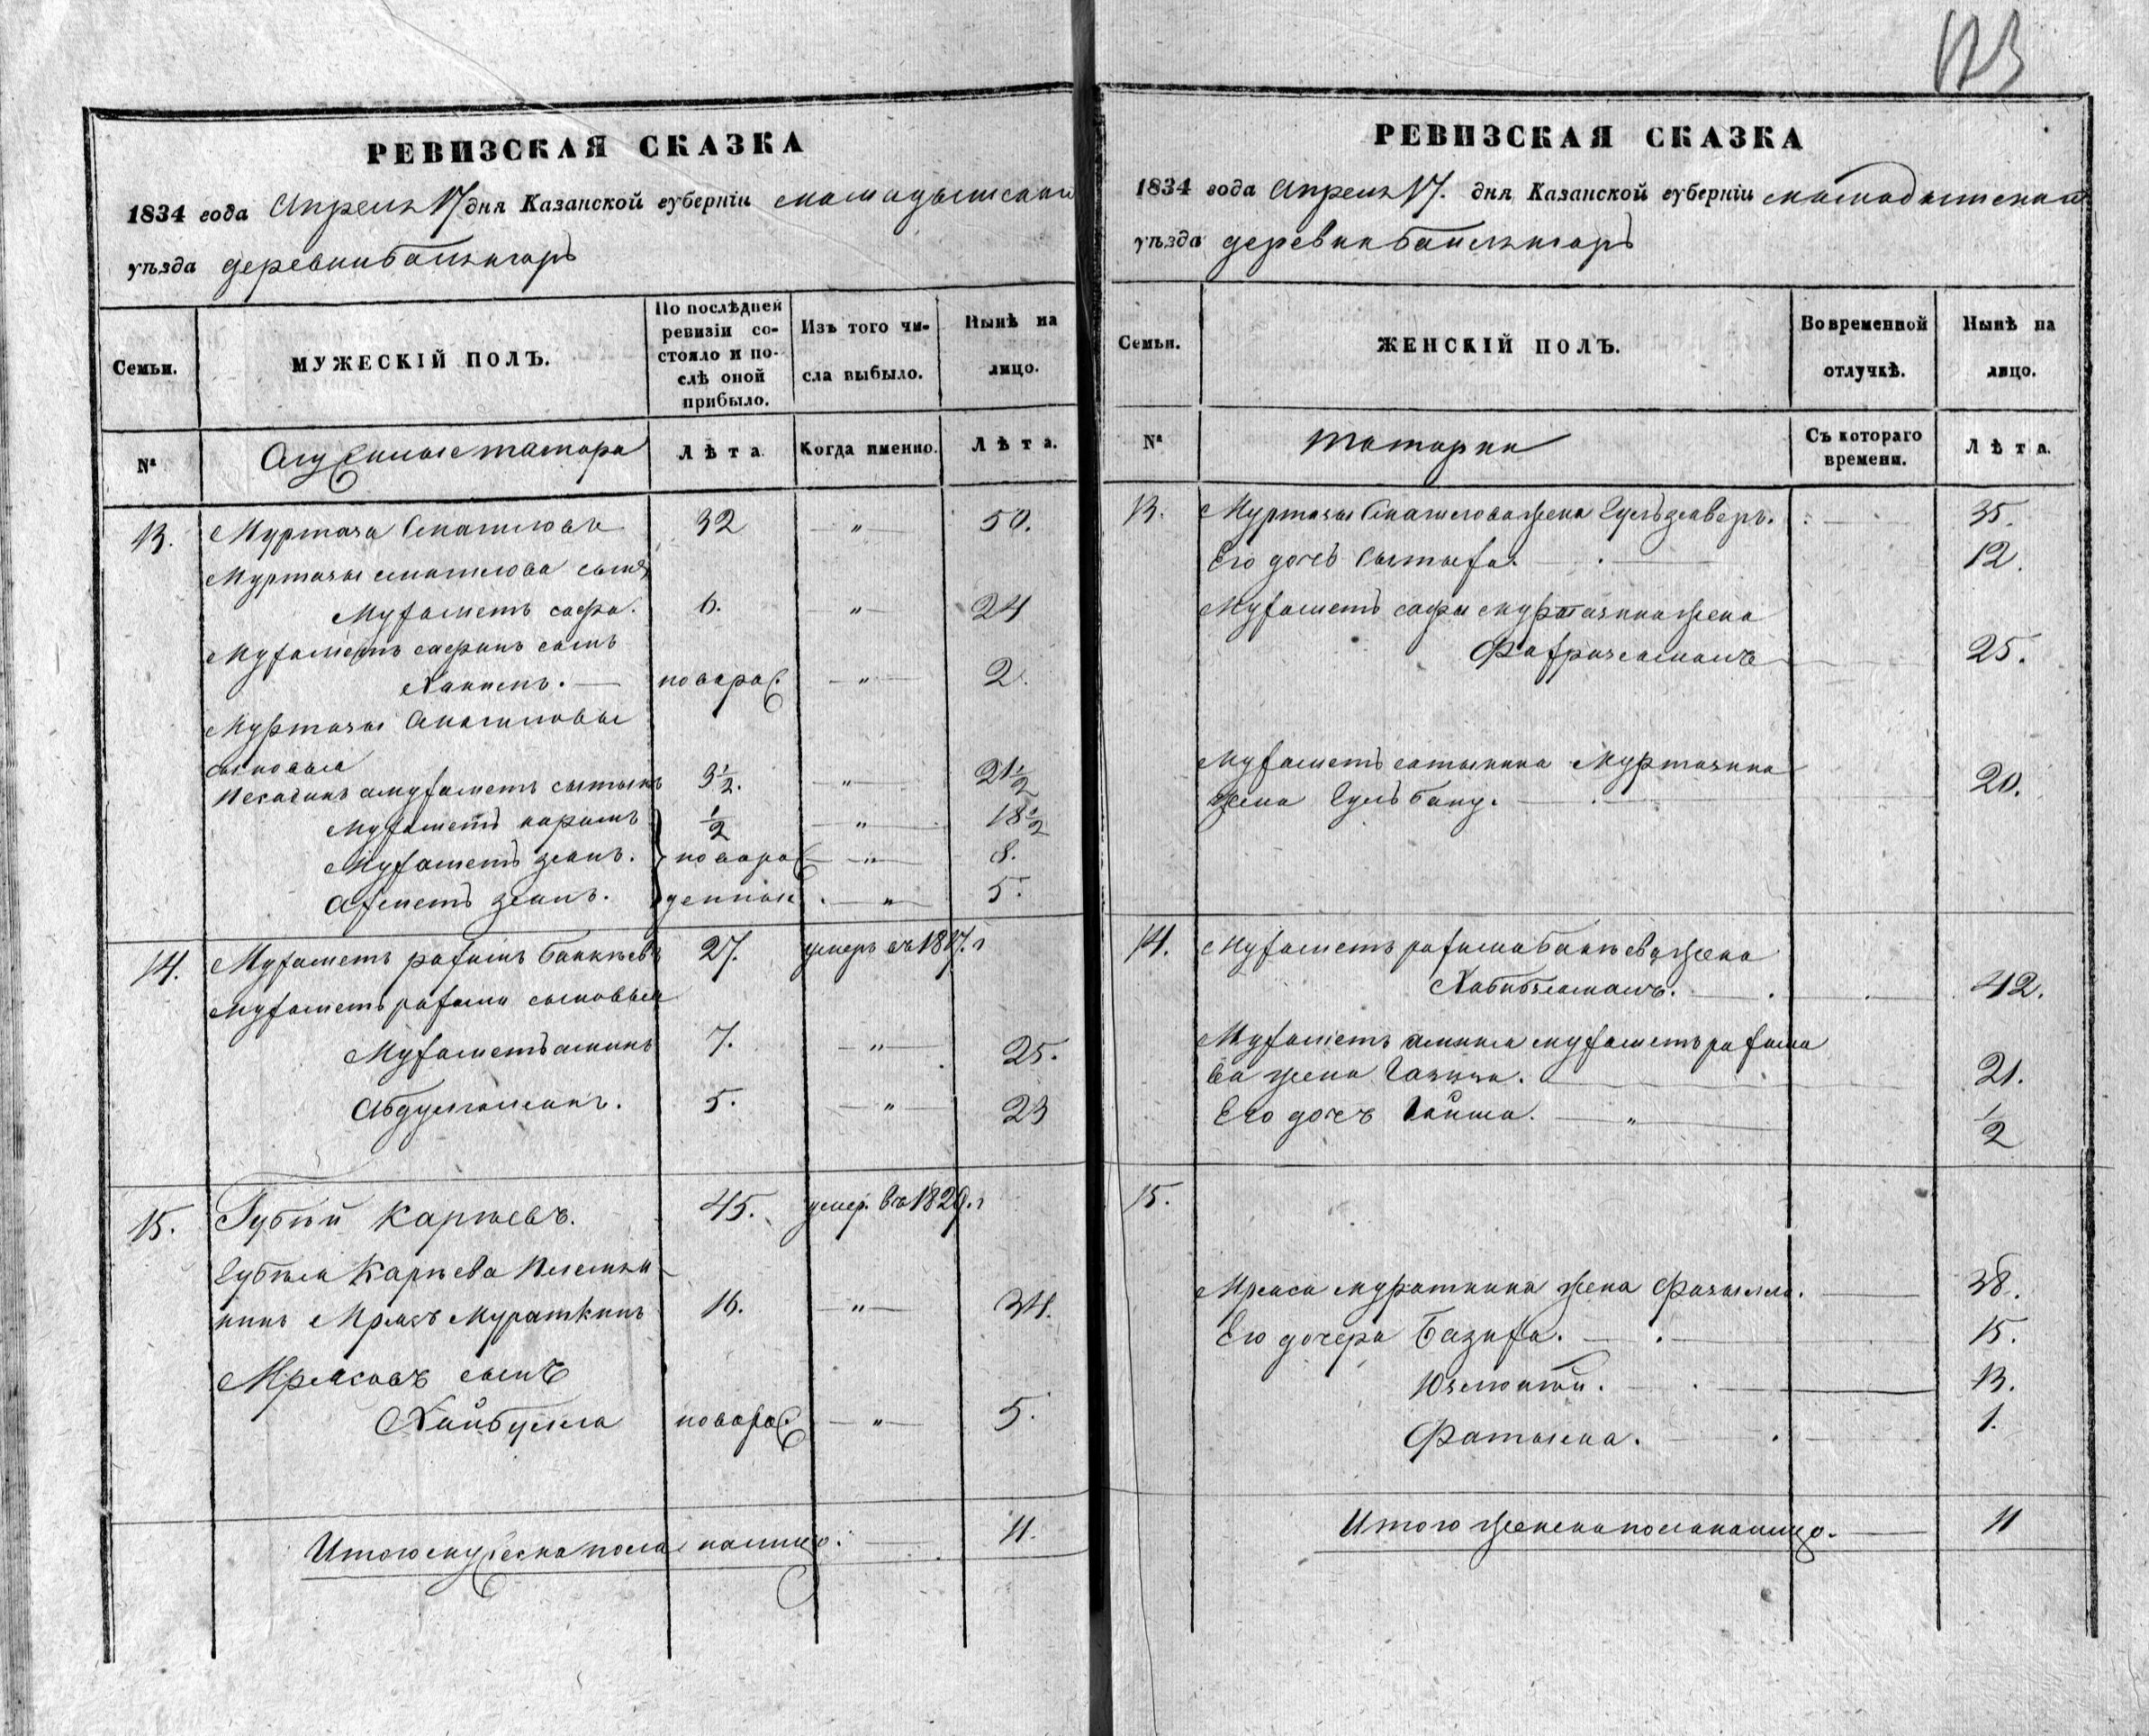 РЕВИЗСКАЯ СКАЗКА
1834 года Апреля 17 дня Казанской губерніи мамадышскаго
уѣзда деревни
Семьи.
МУЖЕСКІЙ ПОЛЪ.
По послѣдней ревизіи со-
стояло и по-
слѣ оной
прибыло.
Изъ того чи-
сла выбыло.
Нынѣ на
лицо.
№
Служилые татара
Лѣта
Когда именно.
Лѣта.
13.
Муртаза Смагиловъ 32 — „ — 50.
Муртазы смагилова сынъ
Мухаметъ сафа. 6. — „ — 24
Мухаметъ сафинъ сынъ
Хакимъ. — новорож. — „ — 2.
Муртазы Смагиловы
сыновья
мухаметъ сытыкъ 3½. — „ — 21½
Мухаметъ каримъ ½ — „ — 18½
Мухаметъ зянъ. новорож — „ — 8.
Ахметъ зянъ. денныя. — „ — 5.
14. Мухаметъ рахимъ Бакѣевъ 27. умеръ въ 18 7. г
Мухаметъ рахима сыновья
Мухаметъ аминъ 7. — „ — 25.
Абдулменъ. 5. — „ — 23
15. Губѣй Карѣевъ. 45. умер. въ 1820. г
Губѣя Карѣева Племян
никъ Мрясъ Мураткинъ 16. — „ — 34.
Мрясовъ сынъ
Хайбулла новорож. — „ — 5.
Итого мужеска пола на лицо. — 11.
РЕВИЗСКАЯ СКАЗКА
1834 года Апреля 17. дня Казанской губерніи мамадышскаго
уѣзда деревни
Семьи.
ЖЕНСКІЙ ПОЛЪ.
Во временной
отлучкѣ.
Нынѣ на
лицо.
№
татарки
Съ котораго
времени.
Лѣта.
13. Муртазы Смагилова жена Гульзяверъ. — 35.
Его дочь Сытыха. — 12.
Мухаметъ сафы муртазина жена
Фахризяманъ 25.
Мухаметъ сатыкина Муртазина
жена Гульбану. — 20.
14. Мухаметъ рахима Бакѣева жена
Хабибзяманъ. — 42.
Мухаметъ амина мухаметъ рахима
ва жена Газиза. — 21.
Его дочь Гайша. — „ — ½
15.
Мряса мураткина жена Фазылля. — 38.
Его дочери Базиха. — 15.
13.
1.
Итого женска пола на лицо. — 11